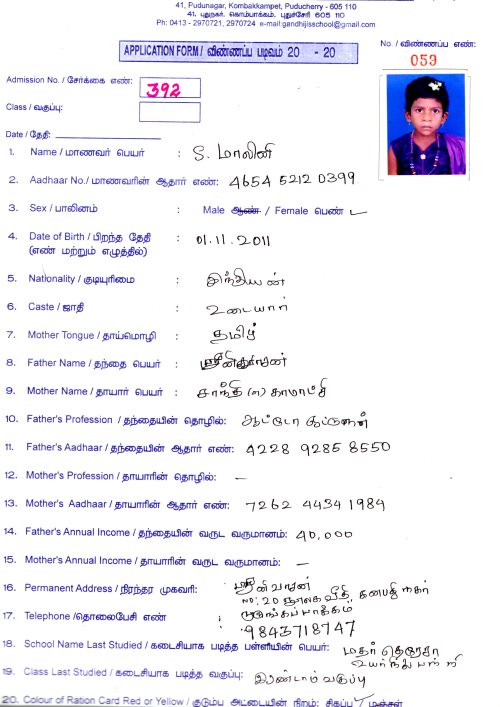 41, Pudunagar, Kombakkampet, Puducherry - 605 110
41, புதுநகர், கொம்பாக்கம், புதுச்சேரி 605 110
Ph: 0413 - 2970721, 2970724 e-mail:gandhijisschool@gmail.com
APPLICATION FORM / விண்ணப்ப படிவம் 20 - 20
No. / விண்ணப்ப எண்:
059
Admission No. / சேர்க்கை எண்: 392
Class / வகுப்பு:
Date / தேதி:
1. Name / மாணவர் பெயர் : S. மாலினி
2. Aadhaar No./ மாணவரின் ஆதார் எண்: 4654 5212 0399
3. Sex / பாலினம் : Male ஆண் / Female பெண்
4. Date of Birth / பிறந்த தேதி : 01.11.2011
(எண் மற்றும் எழுத்தில்)
5. Nationality / குடியுரிமை : இந்தியன்
6. Caste / ஜாதி : உடையார்
7. Mother Tongue / தாய்மொழி : தமிழ்
8. Father Name / தந்தை பெயர் :
9. Mother Name / தாயார் பெயர் : சாந்தி (எ) காமாட்சி
10. Father's Profession / தந்தையின் தொழில்: ஆட்டோ
11. Father's Aadhaar / தந்தையின் ஆதார் எண்: 4228 9285 8550
12. Mother's Profession / தாயாரின் தொழில்: —
13. Mother's Aadhaar / தாயாரின் ஆதார் எண்: 7262 4434 1984
14. Father's Annual Income / தந்தையின் வருட வருமானம்: 40,000
15. Mother's Annual Income / தாயாரின் வருட வருமானம்: —
16. Permanent Address / நிரந்தர முகவரி:
No; 20 வீதி, கனபதி நகர்
17. Telephone /தொலைபேசி எண் : 9843718747
18. School Name Last Studied / கடைசியாக படித்த பள்ளியின் பெயர்: மதர் தெரேசா
19. Class Last Studied / கடைசியாக படித்த வகுப்பு: இரண்டாம் வகுப்பு
20. Colour of Ration Card Red or Yellow / குடும்ப அட்டையின் நிறம்: சிகப்பு / மஞ்சள்